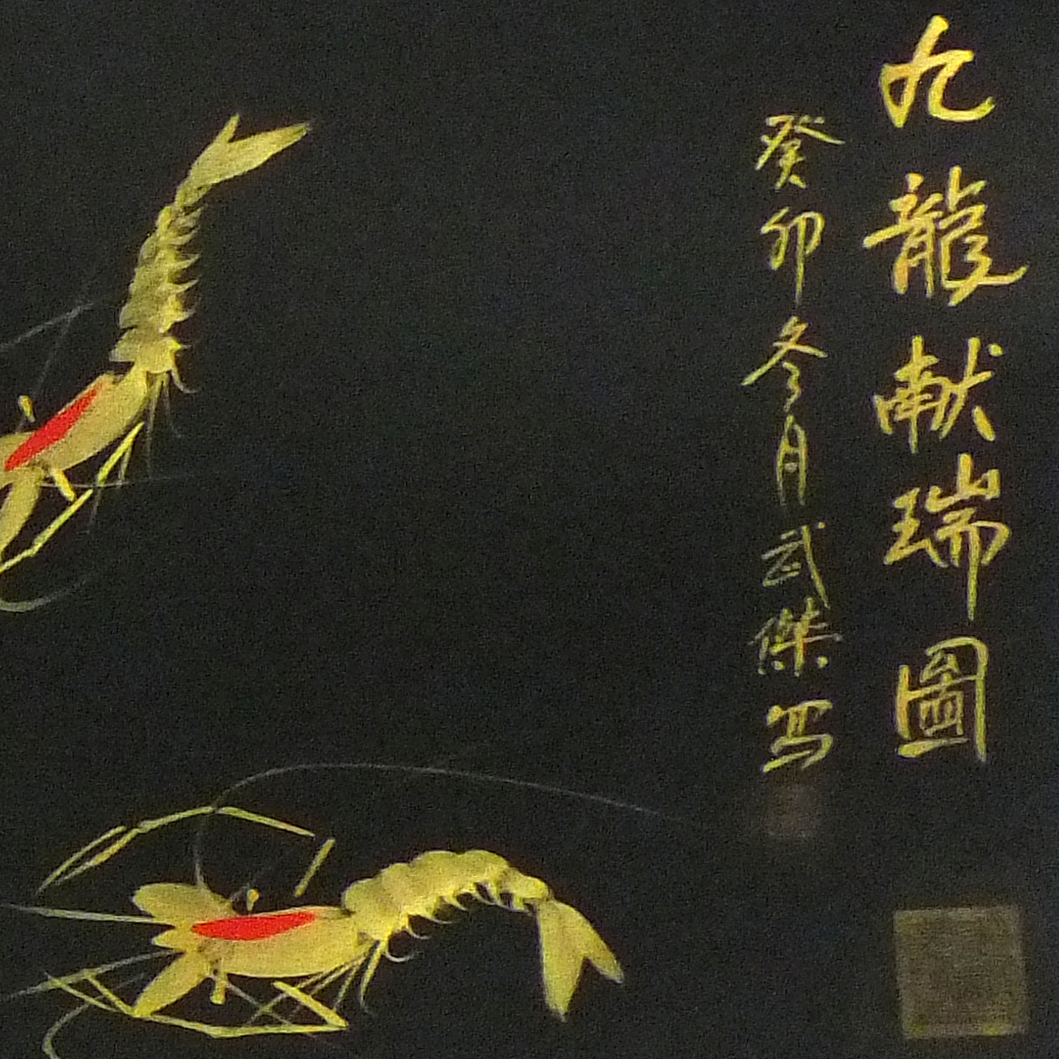 九龍献瑞圖
癸卯冬月武傑写